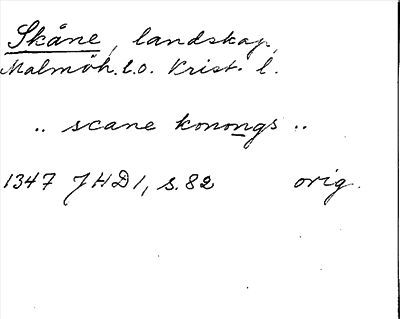 Skåne, landskap,
Malmöh. l. o. Krist. l.
.. scane konongs ..
1347 JHD 1, s. 82 orig.